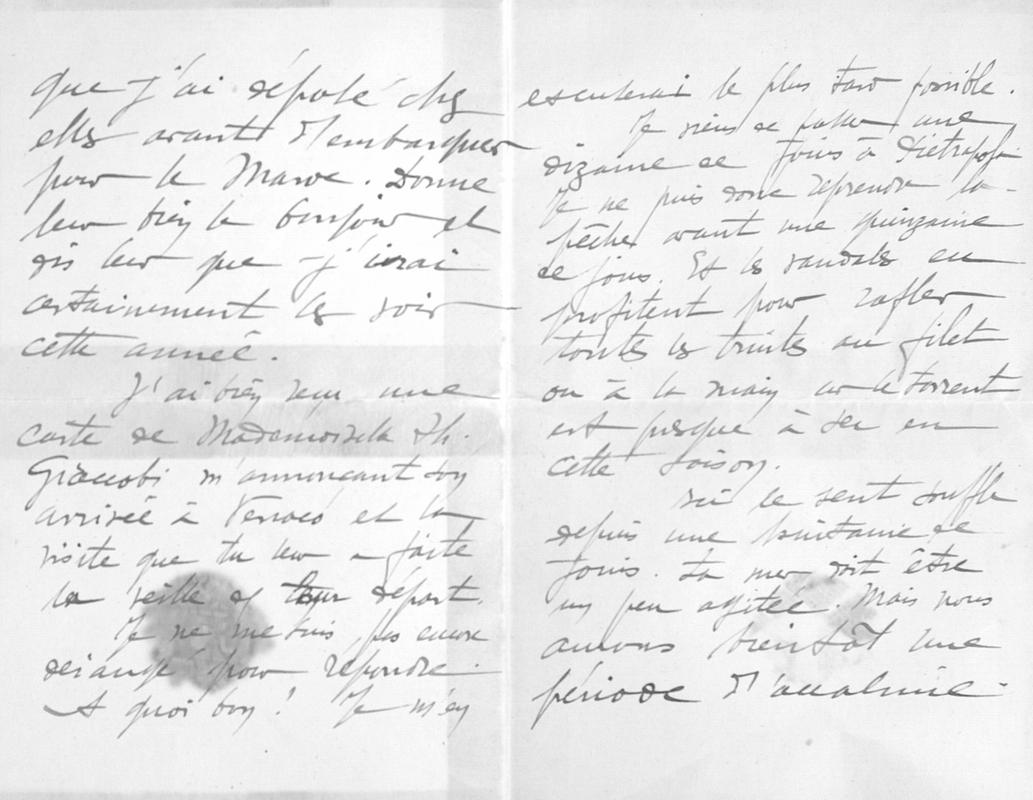 que j'ai déposé chez
elles avant d'embarquer
pour le Maroc. Donne
leur bien le bonjour et
dis leur que j'irai
certainement les voir
cette année.
J'ai bien reçu une
carte de Mademoiselle Th.
Giacobi m'annonçant son
arrivée à et la
visite que tu leur a faite
la veille de leur départ.
Je ne me suis pas encore
dérangé pour répondre.
A quoi bon! Je m'en
excuserai le plus tard possible.
Je viens de passer une
dizaine de jours à Pietrapola
Je ne puis donc reprendre la
pêche avant une quinzaine
de jours. Et les vandales en
profitent pour rafler
toutes les truites au filet
ou à la main car le torrent
est presque à sec en
cette saison.
Ici le vent souffle
depuis une huitaine de
jours. La mer doit être
un peu agitée. Mais nous
aurons bientôt une
période d'accalmie.